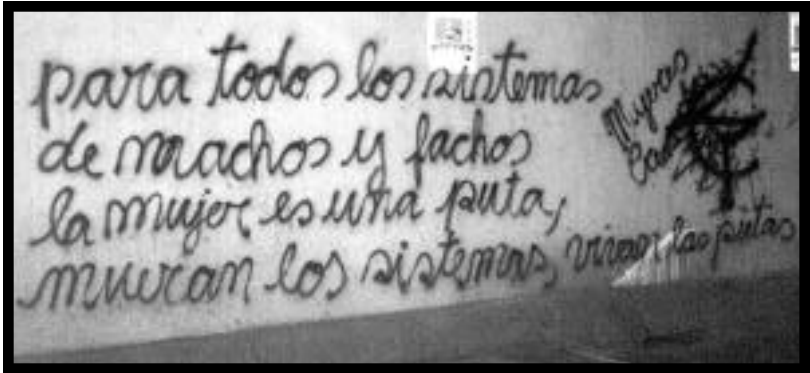 para todos los sistemas
de machos y fachos
la mujer es una puta,
mueran los sistemas, vivan las putas
Mujeres